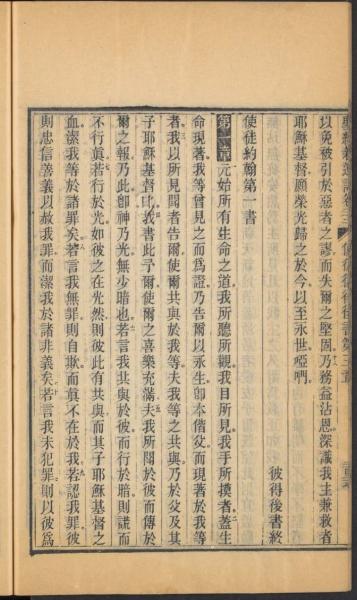 以免被引於惡者之謬而失爾之堅固乃務益沾恩深識我主兼救者
耶穌基督願榮光歸之於今以至永世啞們
彼得後書終
使徒約翰第一書
第一章元始所有生命之道我所聽所觀我目所見我手所摸者蓋生
命現著我等曾見之而為證乃告爾以永生即本偕父而現著於我等
者我以所見聞者告爾使爾共與於我等夫我等之共與乃於父及其
子耶穌基督也我書此予爾使爾之喜樂充滿夫我所聞於彼而傳於
爾之報乃此即神乃光無少暗也若言我共與於彼而行於暗則謊而
不行真若行於光如彼之在光然則彼此有共與而其子耶穌基督之
血潔我等於諸罪矣若言我無罪則自欺而真不在於我若認我罪彼
則忠信善義以赦我罪而潔我於諸非義矣若言我未犯罪則以彼為